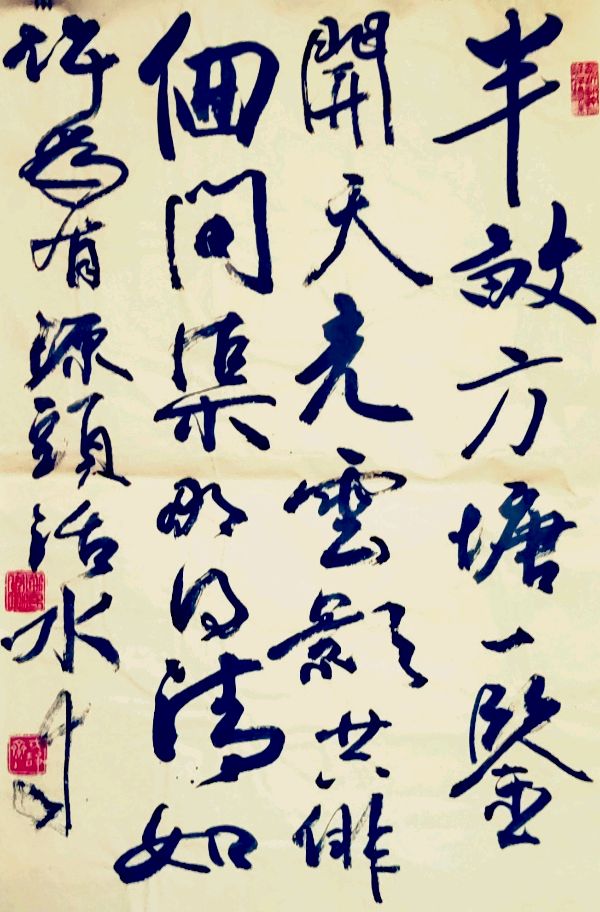 半畝方塘一鑒
開天光雲影共俳
佪問渠那得清如
許為有源頭活水來